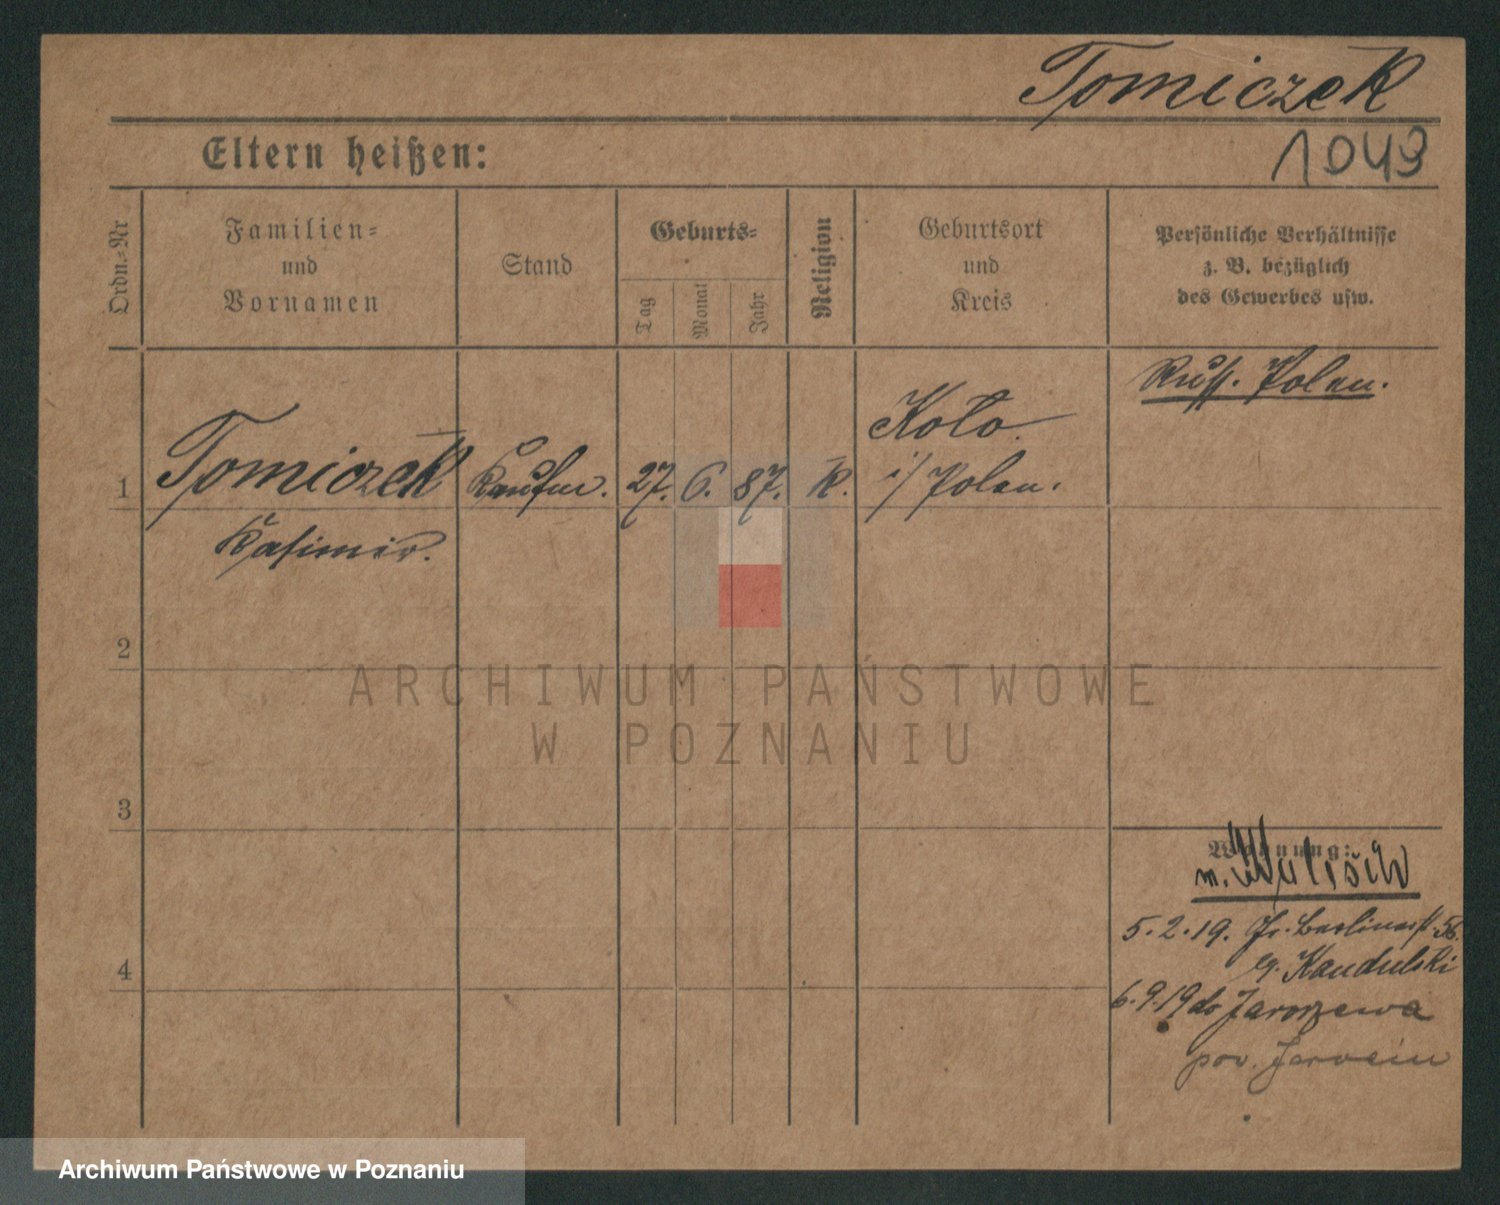 Tomiczek
1049
Eltern heißen:
Ordn.-Nr
Familien-
und
Vornamen
Stand
Geburts-
Tag
Monat
Jahr
Religion
Geburtsort
und
Kreis
Persönliche Verhältnisse
z. B. bezüglich
des Gewerbes usw.
Russ. Polen.
1
Tomiczek
Kasimir.
Kaufm.
27.
6.
87.
K.
Koło
i/ Polen.
2
3
4
Wohnung:
5.2.19. Gr. Berlinerst. 56.
Kandulski
6.9.19 do Jarozewa
pow. Jarocin
ARCHIWUM PAŃSTWOWE
W POZNANIU
Archiwum Państwowe w Poznaniu